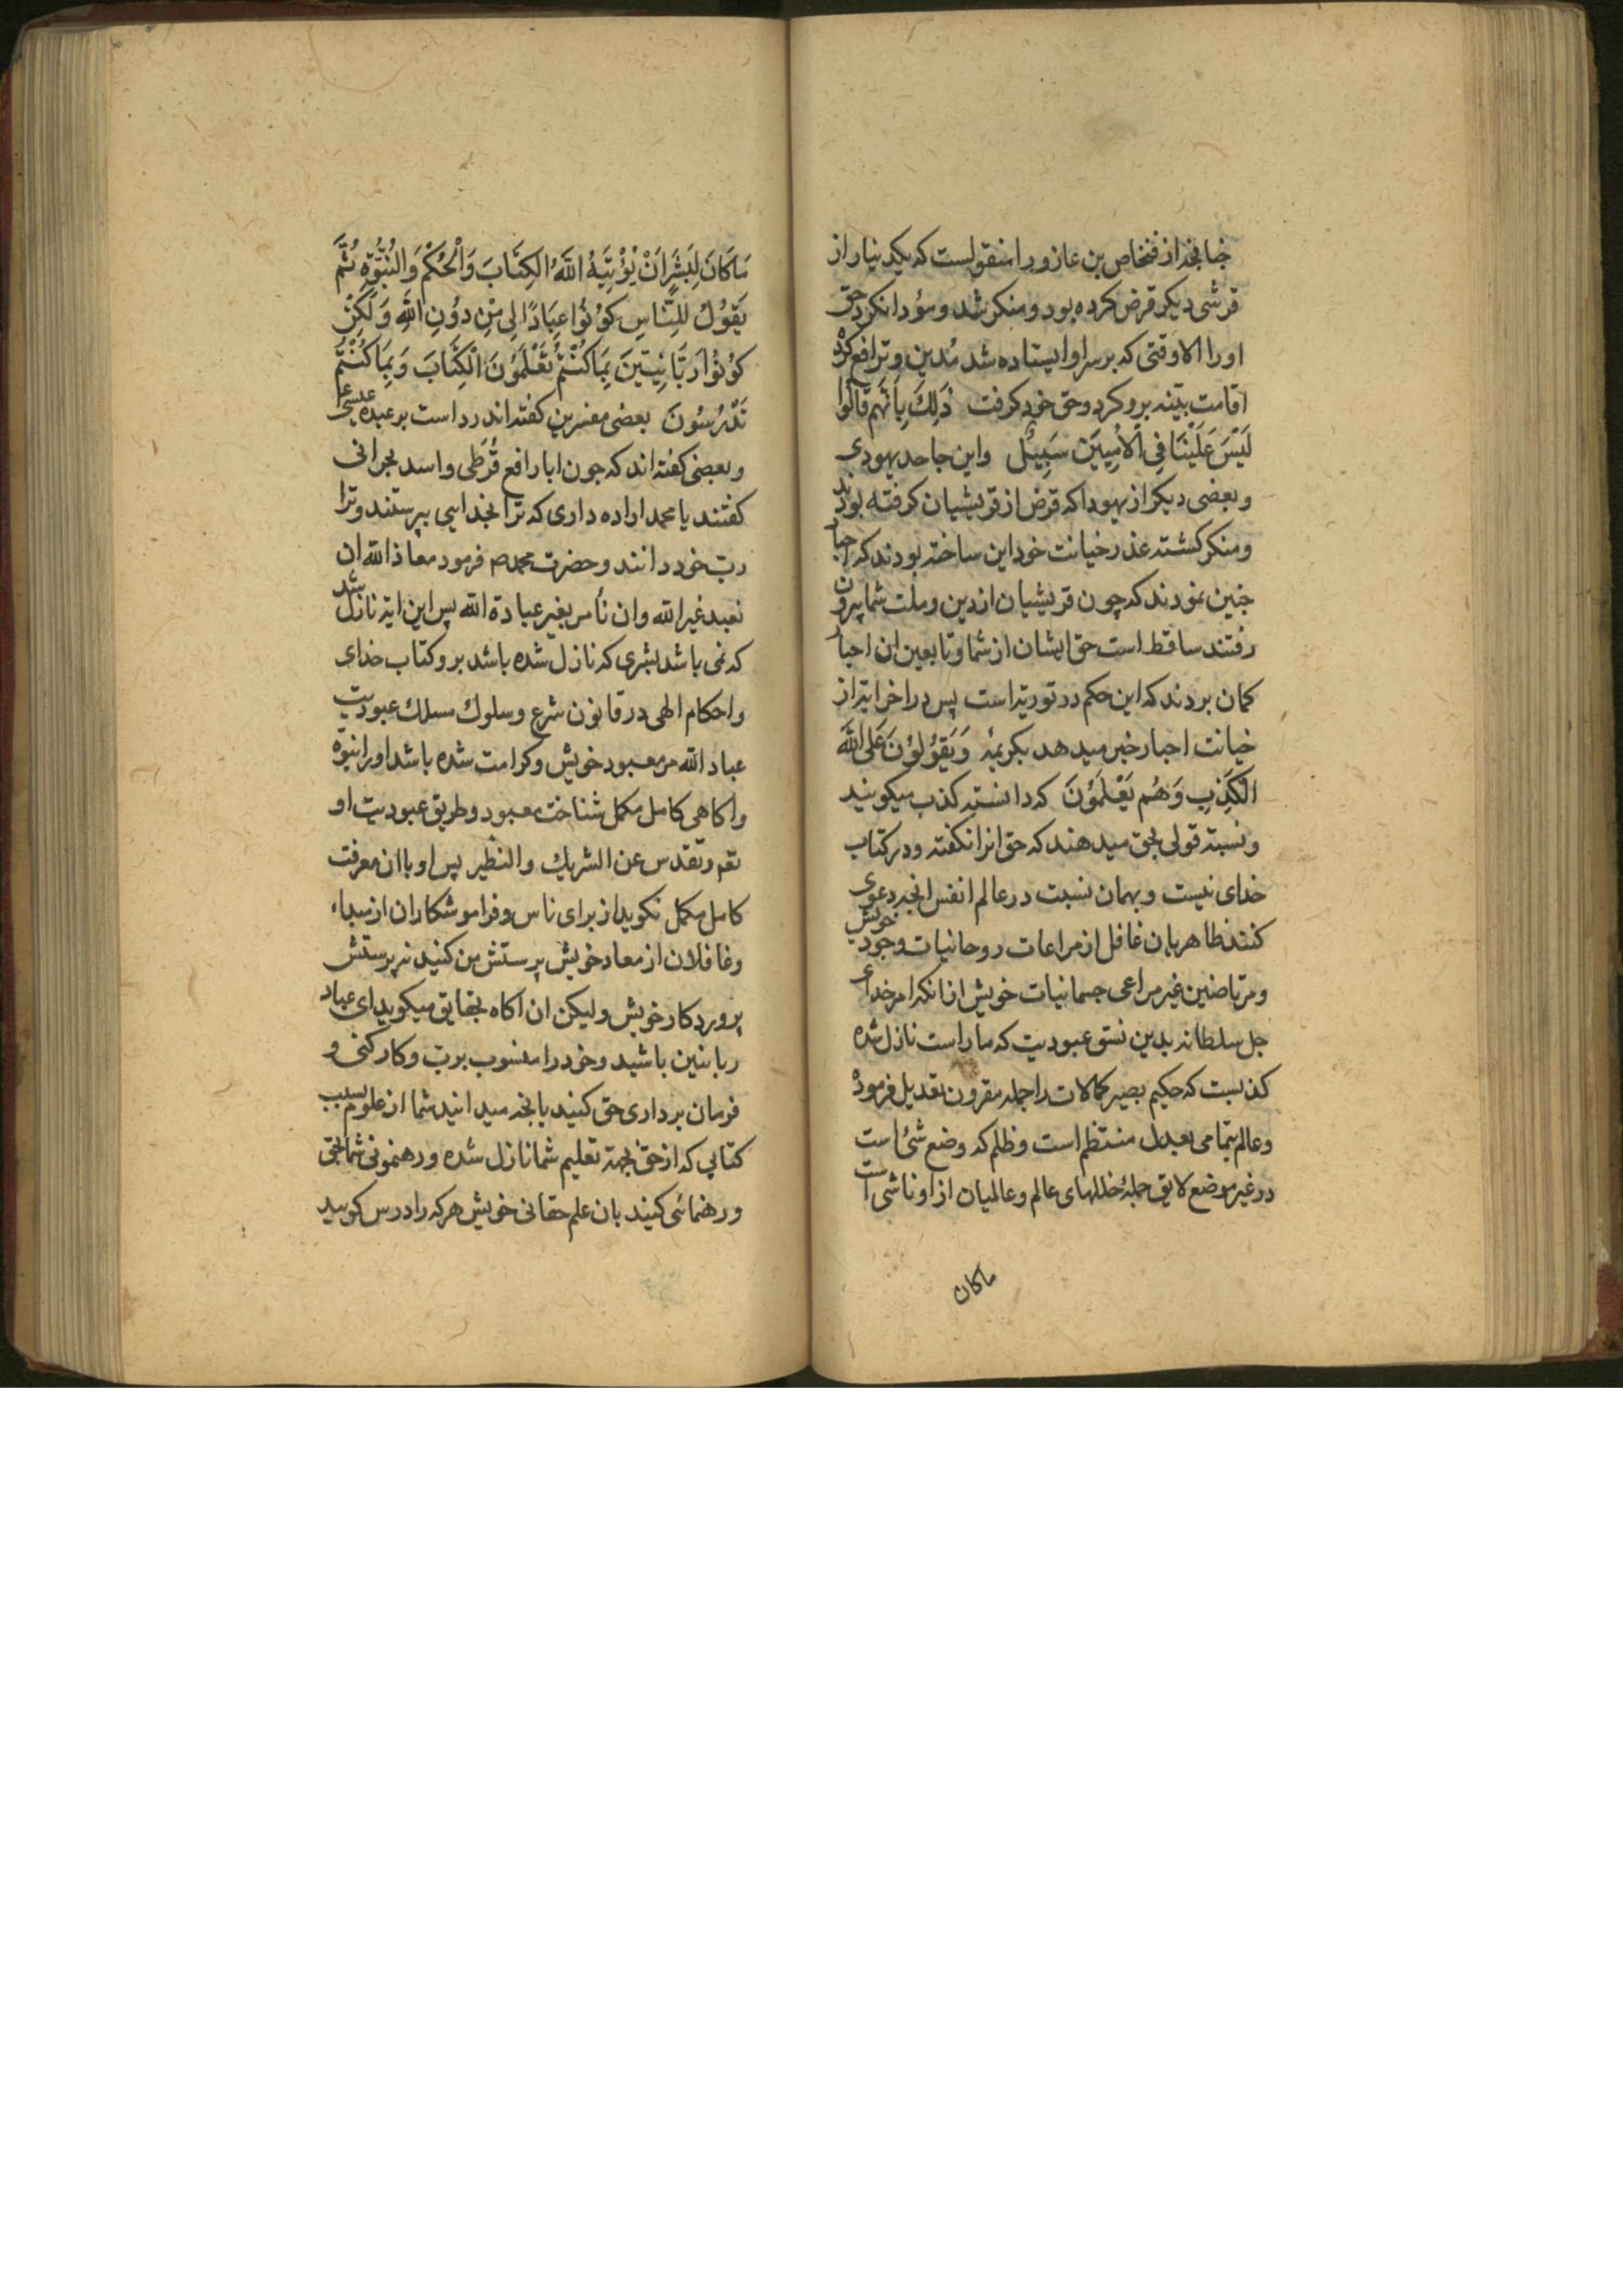 چنانچه از فنخاص بن عازورا منقولست که یکدینار از
قرشی دیکر قرض کرده بود و منکر شد و مؤدا نکرد حق
اورا الا وقتی که بر سر او ایستاده شد مُدین و ترافع کرد
اقامت بینه برو کرد و حق خود کرفت ذٰلِكَ بِاَنَّهُم قَالُوا
لَيْسَ عَلَيْنَا فِي الْاُمِّيِّينَ سَبِيلٌ واین جاحد یهودی
و بعضی دیکر از یهودا که قرض از قریشیان کرفته بودند
ومنکر کشته عذر خیانت خود این ساخته بودند که احبار
چنین نمودند که چون قریشیان از دین و ملت شما بیرون
رفتند ساقط است حق ایشان از شما و تابعین ان احبار
کمان بردند که این حکم در توریة است پس در اخر ایة از
خیانت احبار خبر میدهد بکریمهٔ وَيَقُولُونَ عَلَى اللّٰهِ
الْكَذِبَ وَهُم يَعْلَمُونَ که دانسته کذب میکویند
ونسبة قولی بحق میدهند که حق انرا نکفته ودر کتاب
خدای نیست و بهمان نسبت در عالم انفس انچه دعوی
کنند ظاهریان غافل از مراعات روحانیات وجود خویش
و مرتاضین غیر مراعی جسمانیات خویش از انکه امر خدای
جل سلطانه بدین نسق عبودیت که ما راست نازل شده
کذبست که حکیم بصیر کمالات را جمله مقرون تعدیل فرموده
وعالم بتمامی بعدل منتظم است وظلم که وضع شئ است
در غیر موضع لایق جملهٔ خللهای عالم و عالمیان از او ناشی است
ماکان
مَا كَانَ لِبَشَرٍ اَنْ يُؤْتِيَهُ اللّٰهُ الْكِتَابَ وَالْحُكْمَ وَالنُّبُوَّةَ ثُمَّ
يَقُولُ لِلنَّاسِ كُونُوا عِبَادًا لِي مِنْ دُونِ اللّٰهِ وَلٰكِنْ
كُونُوا رَبَّانِيِّينَ بِمَا كُنْتُمْ تَعْلَمُونَ الْكِتَابَ وَبِمَا كُنْتُمْ
تَدْرُسُونَ بعضی مفسرین کفته اند رد است بر عبدهٔ عیسی ع
وبعضی کفته اند که چون ابا رافع قُرَظی و اسد نجرانی
کفتند یا محمد اراده داری که ترا بخدایی بپرستند وترا
ربّ خود دانند وحضرت محمد ص فرمود معاذ الله ان
نعبد غیر الله وان نأمر بغیر عبادة الله پس این ایة نازل شد
که نمی باشد بشری که نازل شده باشد برو کتاب خدای
واحکام الهی در قانون شرع وسلوك مسلك عبودیت
عباد الله مر معبود خویش وکرامت شده باشد اورا نبوّة
واکاهی کامل مکمل شناخت معبود وطریق عبودیت او
تعم وتقدس عن الشریك والنظیر پس او با ان معرفت
کامل مکمل نکوید از برای ناس و فراموشکاران از مبداء
وغافلان از معاد خویش پرستش من کنید نه پرستش
پروردکار خویش ولیکن ان اکاه بحقایق میکوید ای عباد
ربانیین باشید وخود را منسوب بربّ وکار کنی و
فرمان برداری حق کنید بانچه میدانید شما از علوم بسبب
کتابی که از حق بجهة تعلیم شما نازل شده ورهنمونی شما بحق
ورهنمائی کنید بان علم حقانی خویش هر که را درس کویید